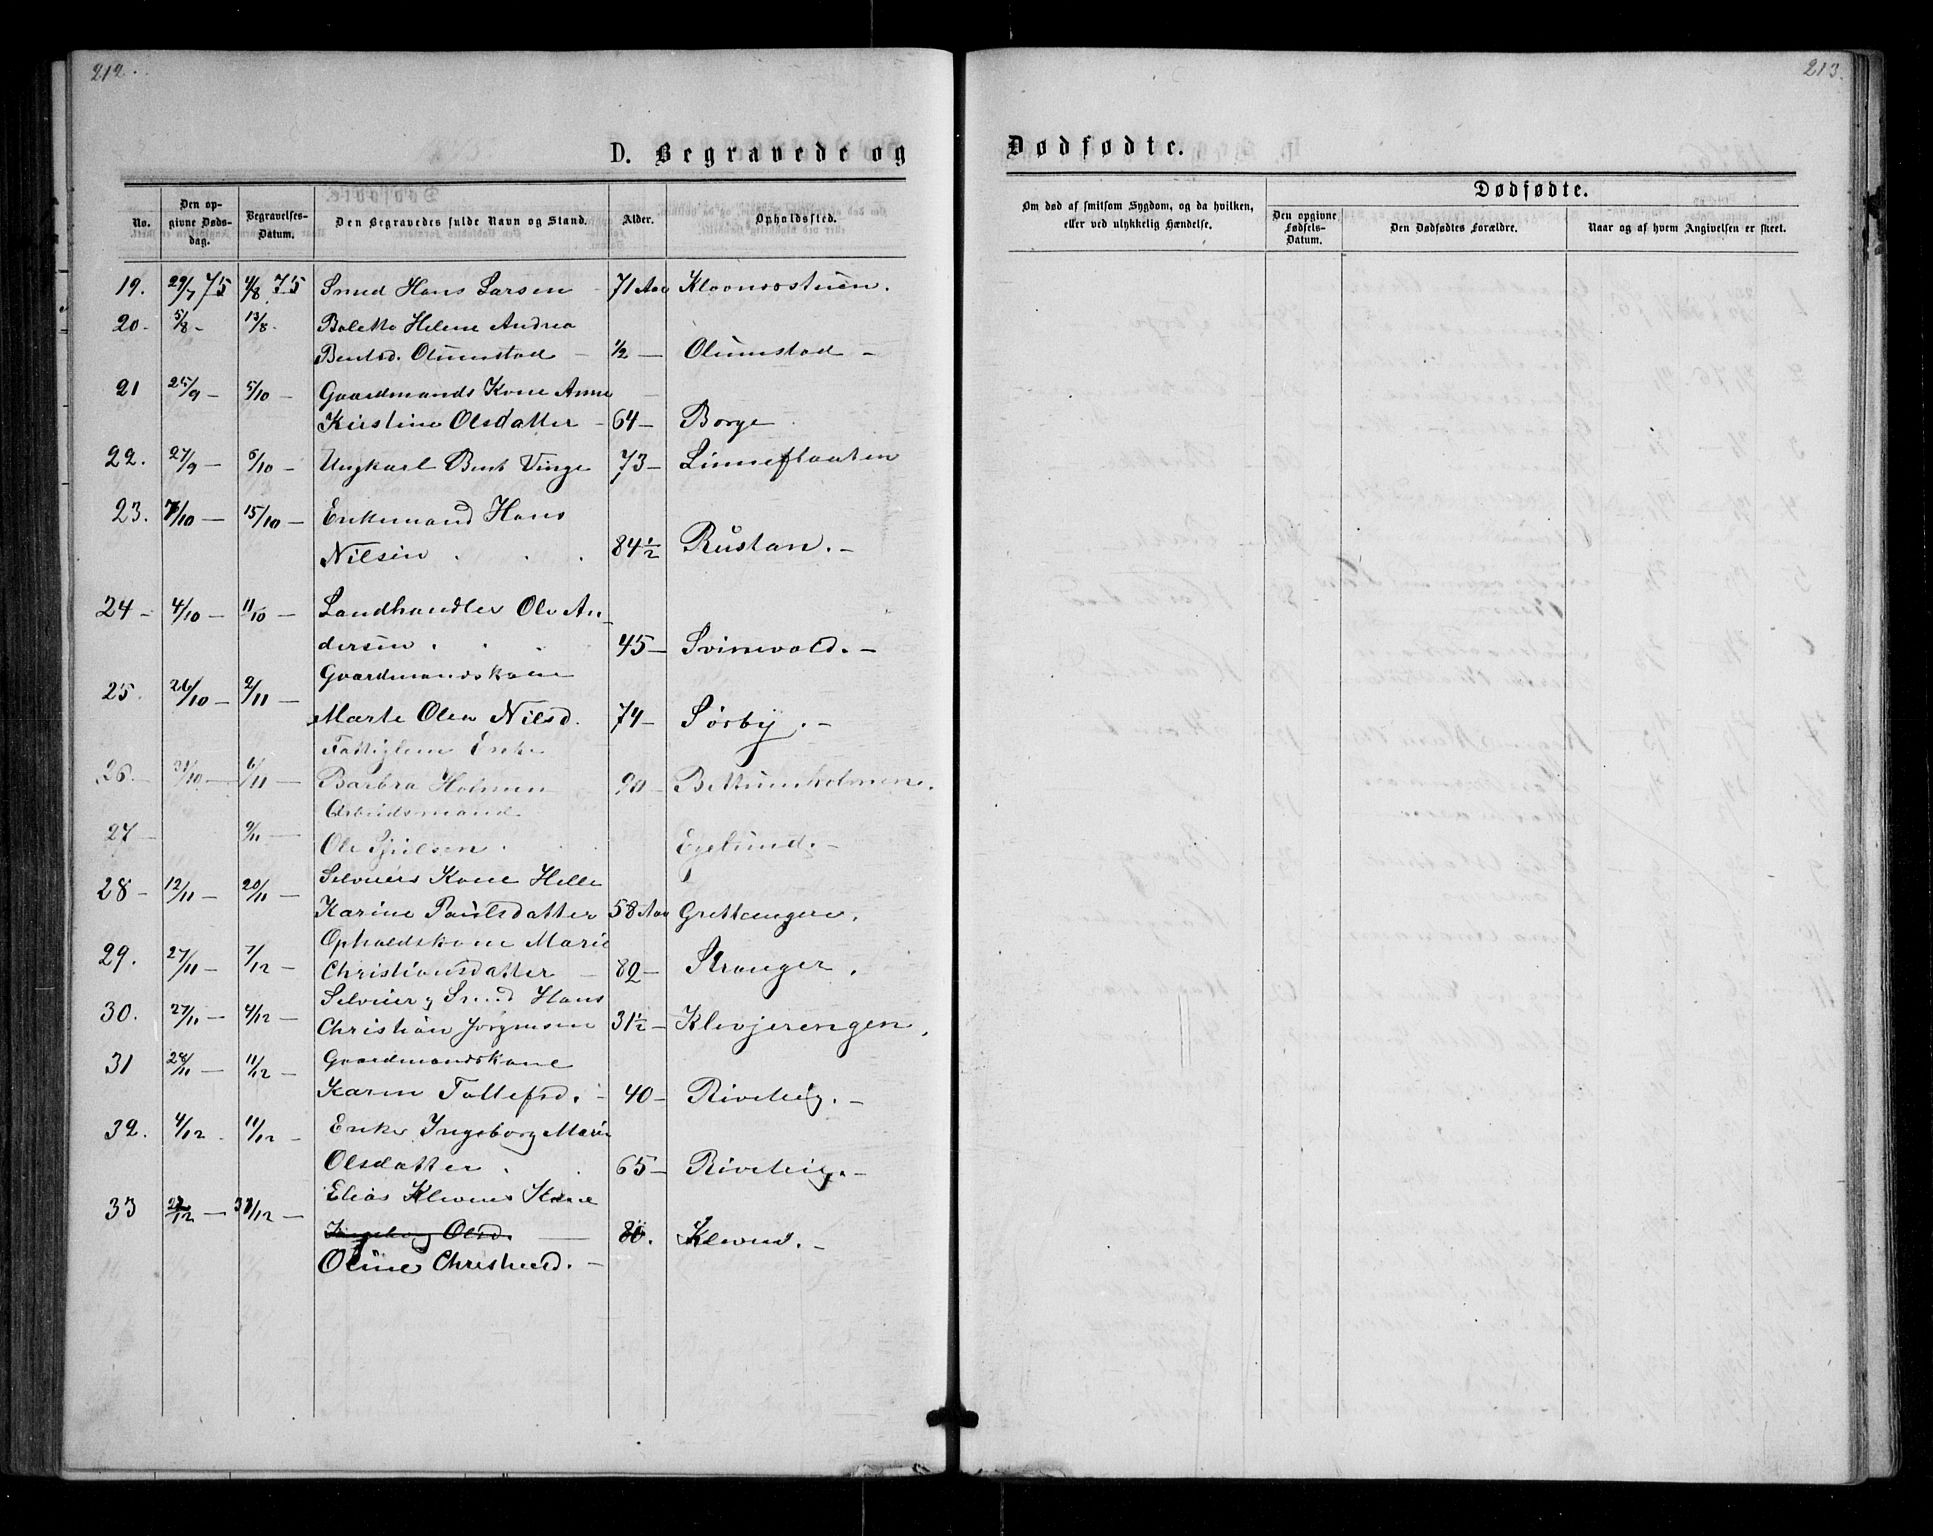 212.
213.
D. Begravede og
Dødfødte.
No.
Den op-
givne Døds-
dag.
Begravelses-
Datum.
Den Begravedes fulde Navn og Stand.
Alder.
Opholdssted.
Om død af smitsom Sygdom, og da hvilken,
eller ved ulykkelig Hændelse.
Dødfødte.
Den opgivne
Fødsels-
Datum.
Den Dødfødtes Forældre.
Naar og af hvem Angivelsen er skeet.
19. 29/7 75 4/8 75 Smed Hans Larsen - 71 Aar
20 - 5/8 - 13/8 - Bolette Helene Andrea
Bentsd. Olumstad - 1/2 - Olumstad -
21 25/9 - 5/10 - Gaardmands Kone Anne
Kirstine Olsdatter - 64 - Borge
22. 27/9 - 6/10 - Ungkarl Bent Vinge 73 - Linneflaaten
23. 7/10 - 15/10 - Enkemand Hans
Nilsen . . . 84 1/2 Rustan. -
24 - 4/10 - 11/10 - Landhandler Ole An-
dersen . . . 45 - Svinevold. -
25. 26/10 - 2/11 - Gaardmandskone
Marte Olea Nilsd. 74 - Sørby. -
Fattiglem Enke
26. - 31/10 - 6/11 - Barbra Holmen 90 - Bettumholmene.
Arbeidsmand
27 - 9/11 - Ole
Egelund. -
28 - 12/11 - 20/11 - Selveiers Kone Helle
Karine Paulsdatter 58 Aar Grettengen.
29. 27/11 - 7/12 - Opholdskone Marie
Christiansdatter - 82 - Stranger.
30. 27/11 - 4/12 - Selveier og Smed Hans
Christian Jørgensen 31 1/2 - Klevjerengen.
31 28/11 - 11/12 - Gaardmandskone
Karen Tollefsd. - 40 - Riveteig. -
32. 4/12 . 11/12 - Enke Ingeborg Marie
Olsdatter . . 65 - Riveteig. -
33 22/12 - 31/12 - Elias Klevens Kone
Ingeborg Olsd. - 80. Kleven. -
Oline Christensd. -